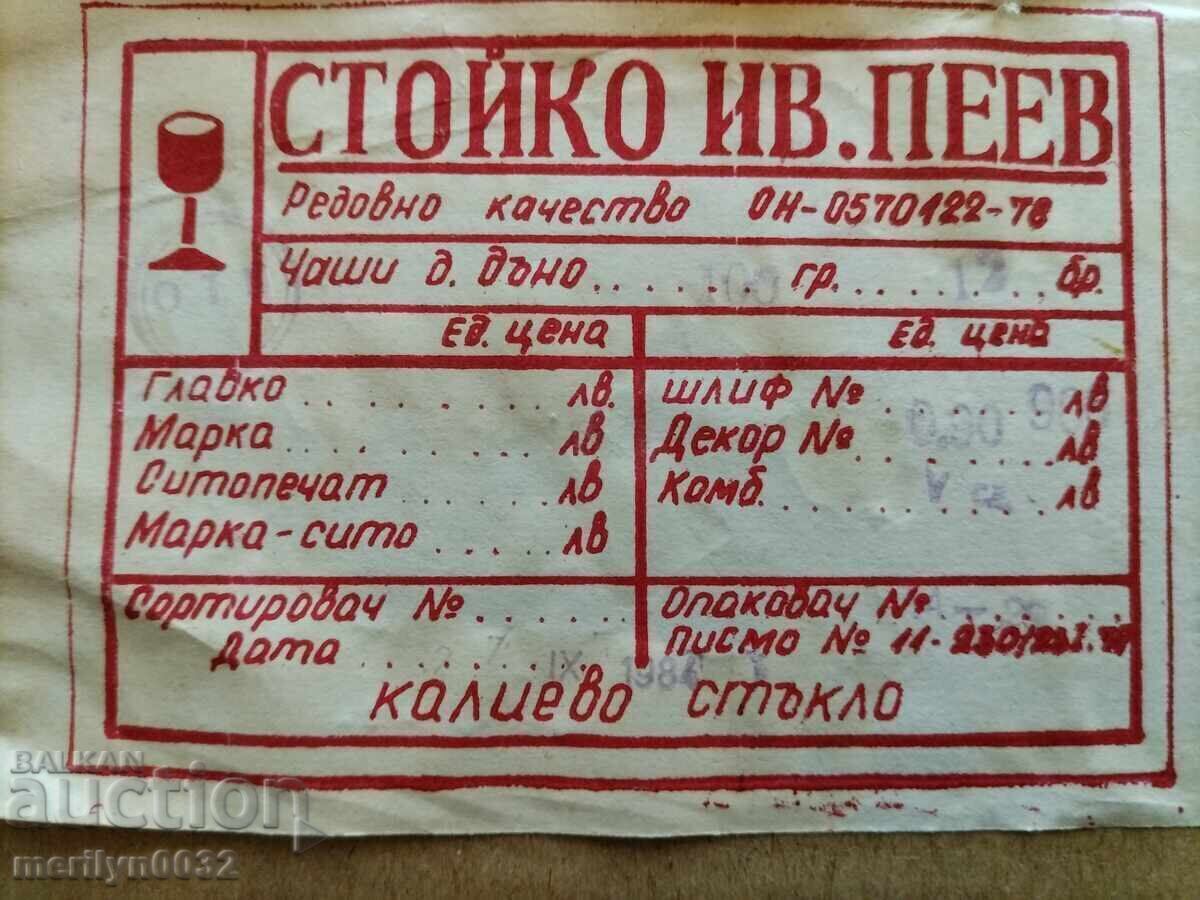 СТОЙКО ИВ. ПЕЕВ
Редовно качество ОН-0570122-78
Чаши д. дъно........100 гр......12..бр.
Ед. цена
Ед. цена
Главко.........лв.
Марка.........лв
Ситопечат.......лв
Марка-сито.....лв
ШЛИФ №.........лв
Декор №..0,90.....лв
Комб...........лв
Сортировач №......
Дата......IX 198
Опаковач №.......
Писмо № 11-
КАЛИЕВО СТЪКЛО
BALKAN
auction
merilyn0032